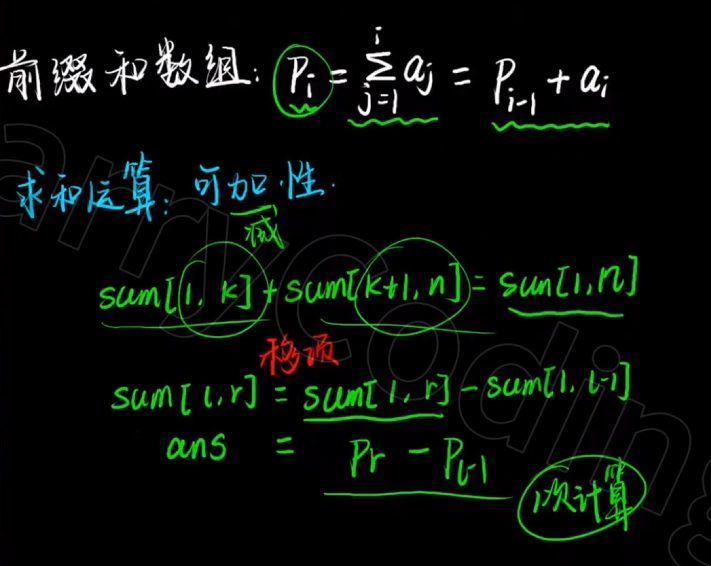 前缀和数组: P_i = \sum_{j=1}^{i} a_j = P_{i-1} + a_i
求和运算: 可加性.
减
sum[1, k] + sum[k+1, n] = sun[1, n]
移项
sum[l, r] = sum[1, r] - sum[1, l-1]
ans = Pr - P_{l-1}
1次计算
arryCoding